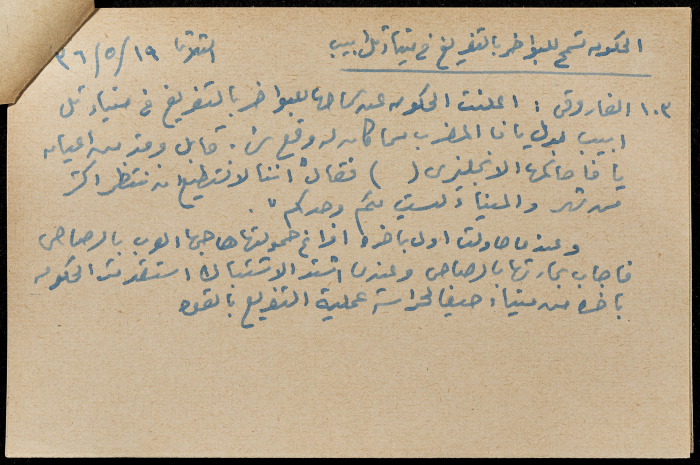 الحكومه تسمح للبواخر بالتفريغ في ميناء تل ابيب
الثلاثا ١٩/٥/٣٦
١٠٣ الفاروقي : اعلنت الحكومه عن سماحها للبواخر بالتفريغ في ميناء تل
ابيب بدل يافا المضرب مما كان له وقع سئ. قابل وفد من اعيان
يافا حاكمها الانجليزي ( ) فقال "اننا لا نستطيع ان ننتظر اكثر
من شهر والميناء ليست لكم وحدكم".
وعندما حاولت اول باخره افراغ حمولتها هاجمها العرب بالرصاص
فاجاب بحارتها بالرصاص وعندما اشتد الاشتباك استقدمت الحكومه
باخره من ميناء حيفا لحراسة عملية التفريغ بالقوه